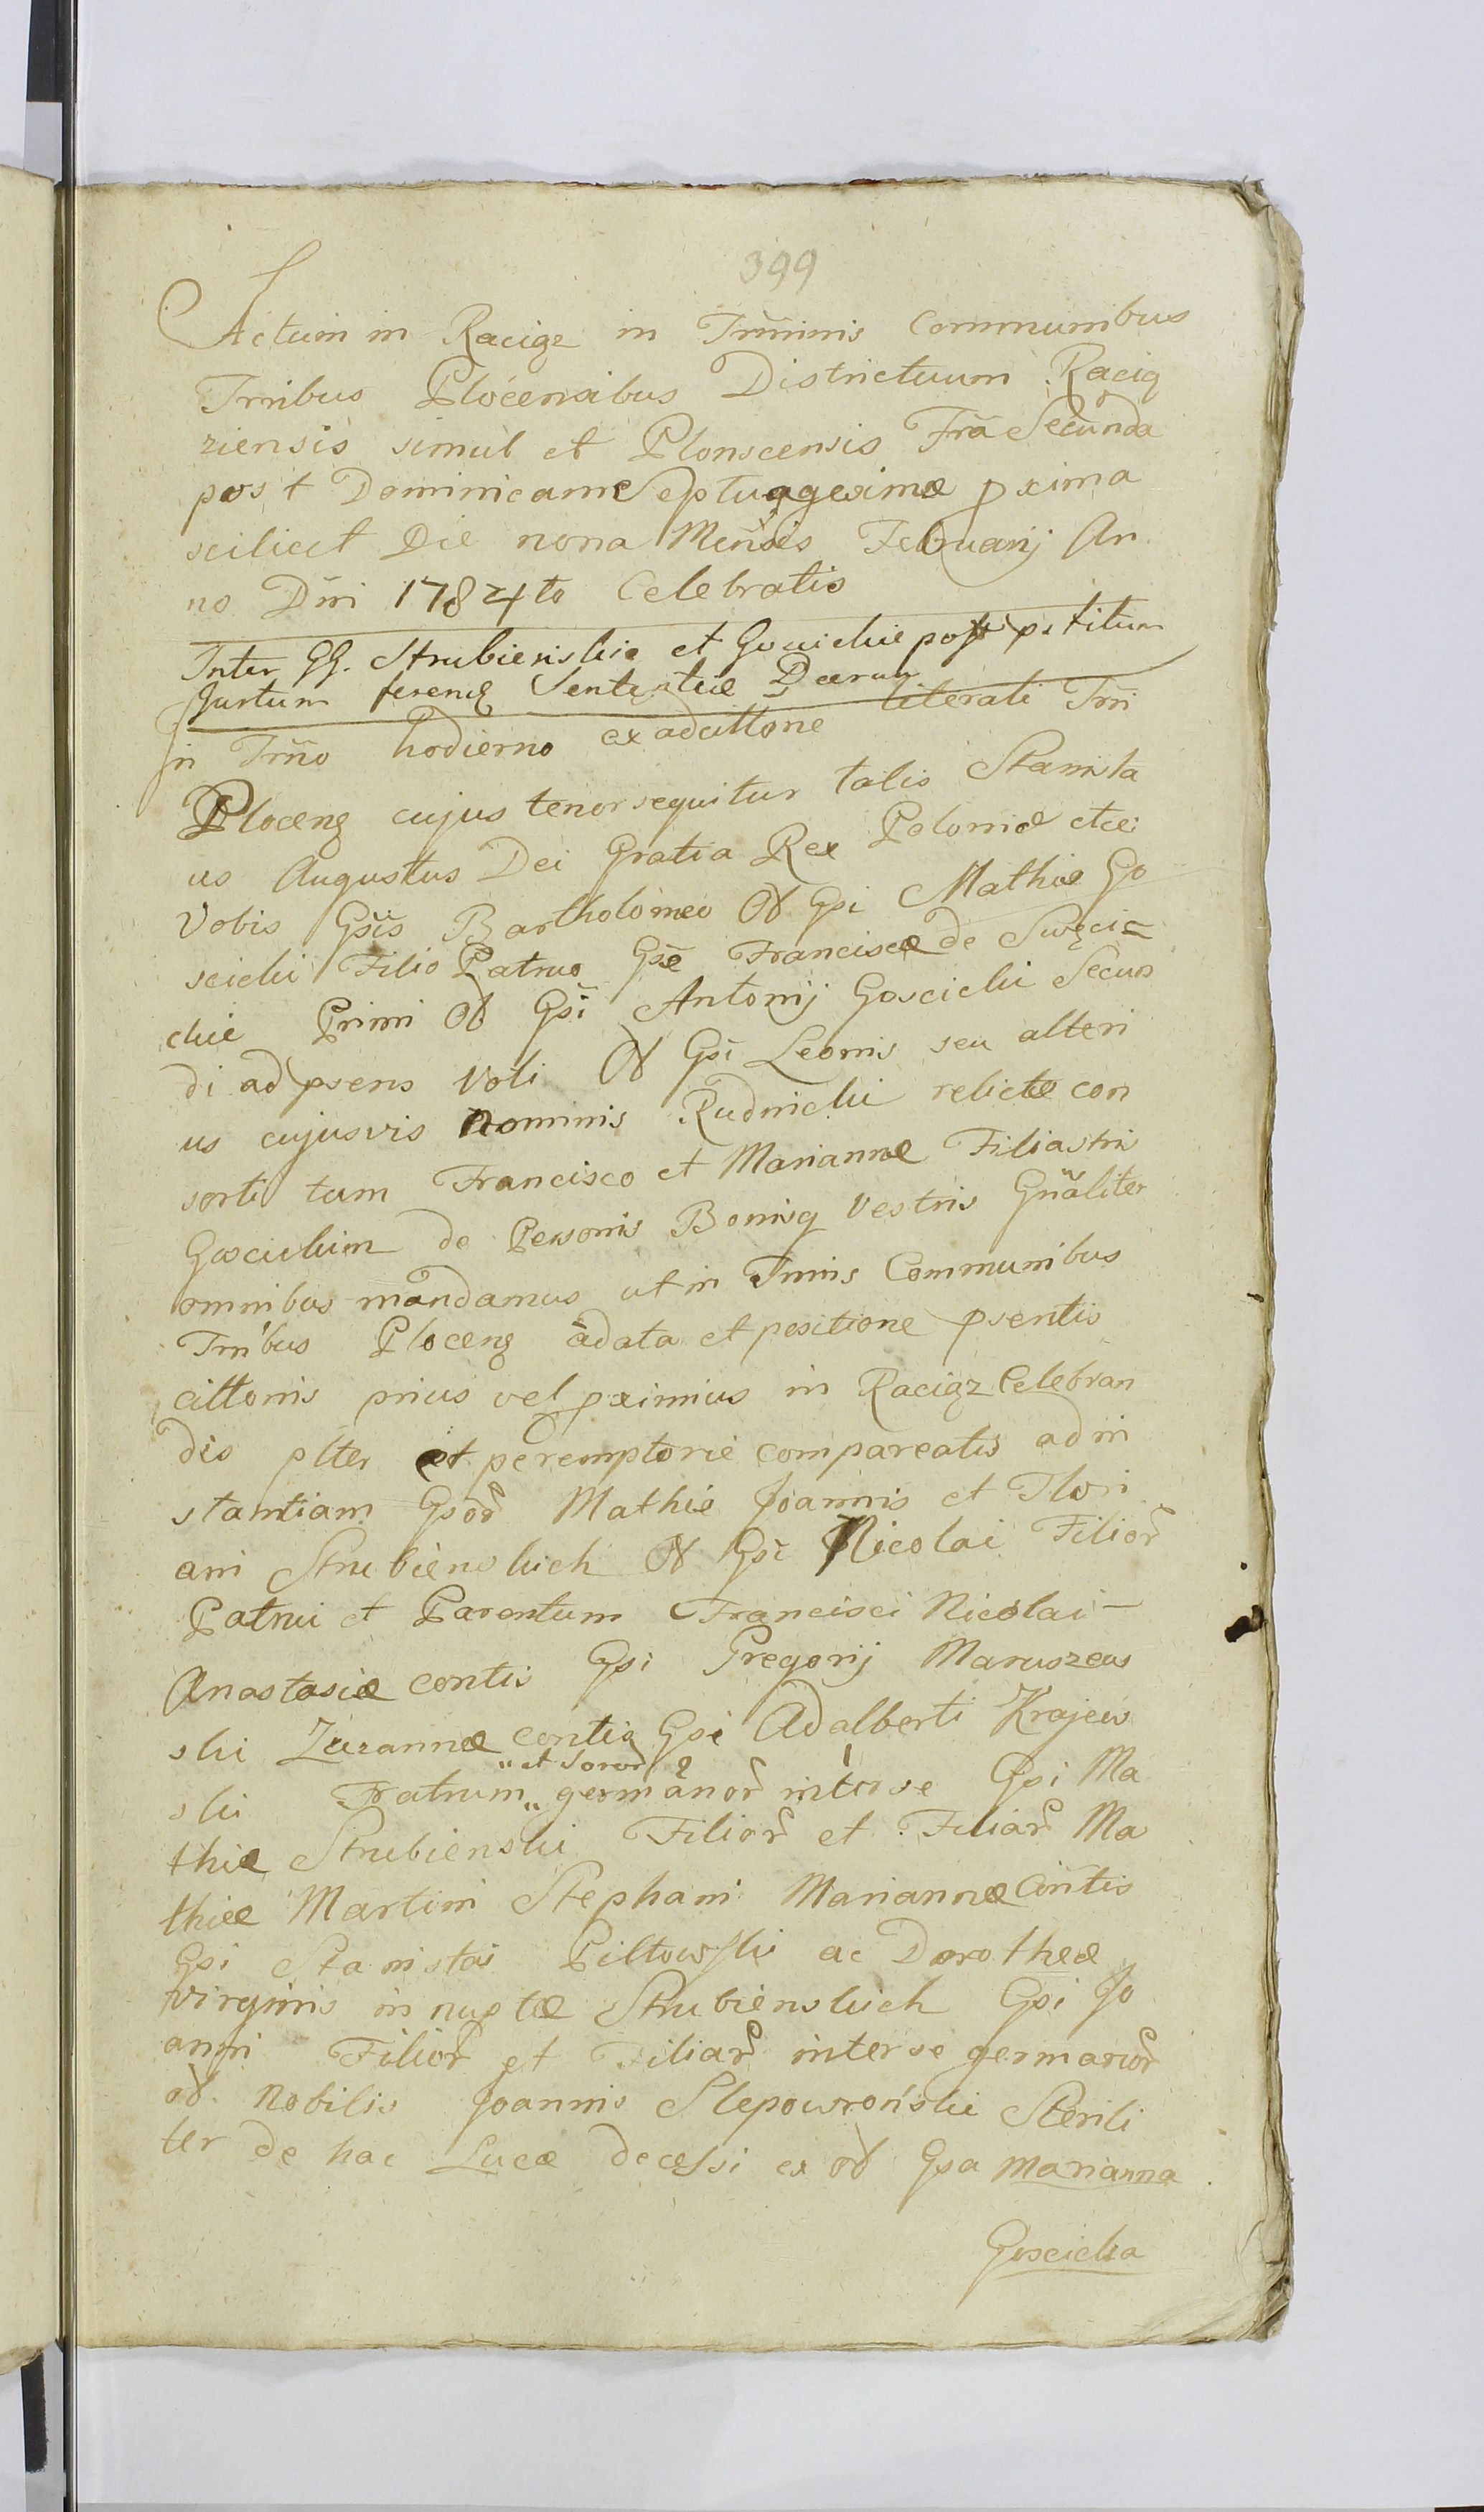 399
Actum in Raciąz in Trminis Communibus
Trribus Plocensibus Districtuum Raciąz
ziensis simul et Plonscensis Fria Secunda
post Dominicam Septuagesimæ pxima
scilicet Die nona Mensis Februarij An
no Dni 1784to Celebratis
Inter GG. Strubienskie et Goscickie post pstitum
Jurtum ferenđ Sententiæ Decrum
In Trno hodierno ex adcittone literali Trri
Ploceng cujus tenor sequitur talis Stanisla
us Augustus Dei Gratia Rex Poloniæ etcei
Vobis Gsis Bartholomeo Ol Gsi Mathiæ Go
scicki Filio Patruo Gsæ Franciscæ de Swięcic=
kie Primi Ol Gsi Antonij Goscicki Secun
di ad psens Voti Ol Gsi Leonis seu alteri
us cujusvis Nominis Rudnicki relictæ con
sorti tum Francisco et Mariannæ Filiastris
Goscickim de Personis Bonisq Vestris Gnaliter
omnibus mandamus ut in Trmis Communibus
Trribus Ploceng a data et positione psentis
cittonis prius vel pximius in Raciąz Celebran
dis plter et peremptorie compareatis ad in
stantiam Gsor Mathiæ Joannis et Flori
ani Strubienskich Ol Gsi Nicolai Filior
Patrui et Parentum Francisci Nicolai —
Anastasiæ contis Gsi Gregorij Maruszews
ski Zuzannæ contis Gsi Adalberti Krajews
ski Fratrum „et Soror„ germanor inter se Gsi Ma
thiæ Strubienski Filior et Filiar Ma
thiæ Martini Stephani Mariannæ Contis
Gsi Stanislai Piltowski ac Dorotheæ
Virginis innuptæ Strubienskich Gsi Jo
anni Filior et Filiar inter se germanor
ol Nobilis Joannis Slepowroński Sterili
ter de hac Luce decessi ex ol Gsa Marianna
Goscicka